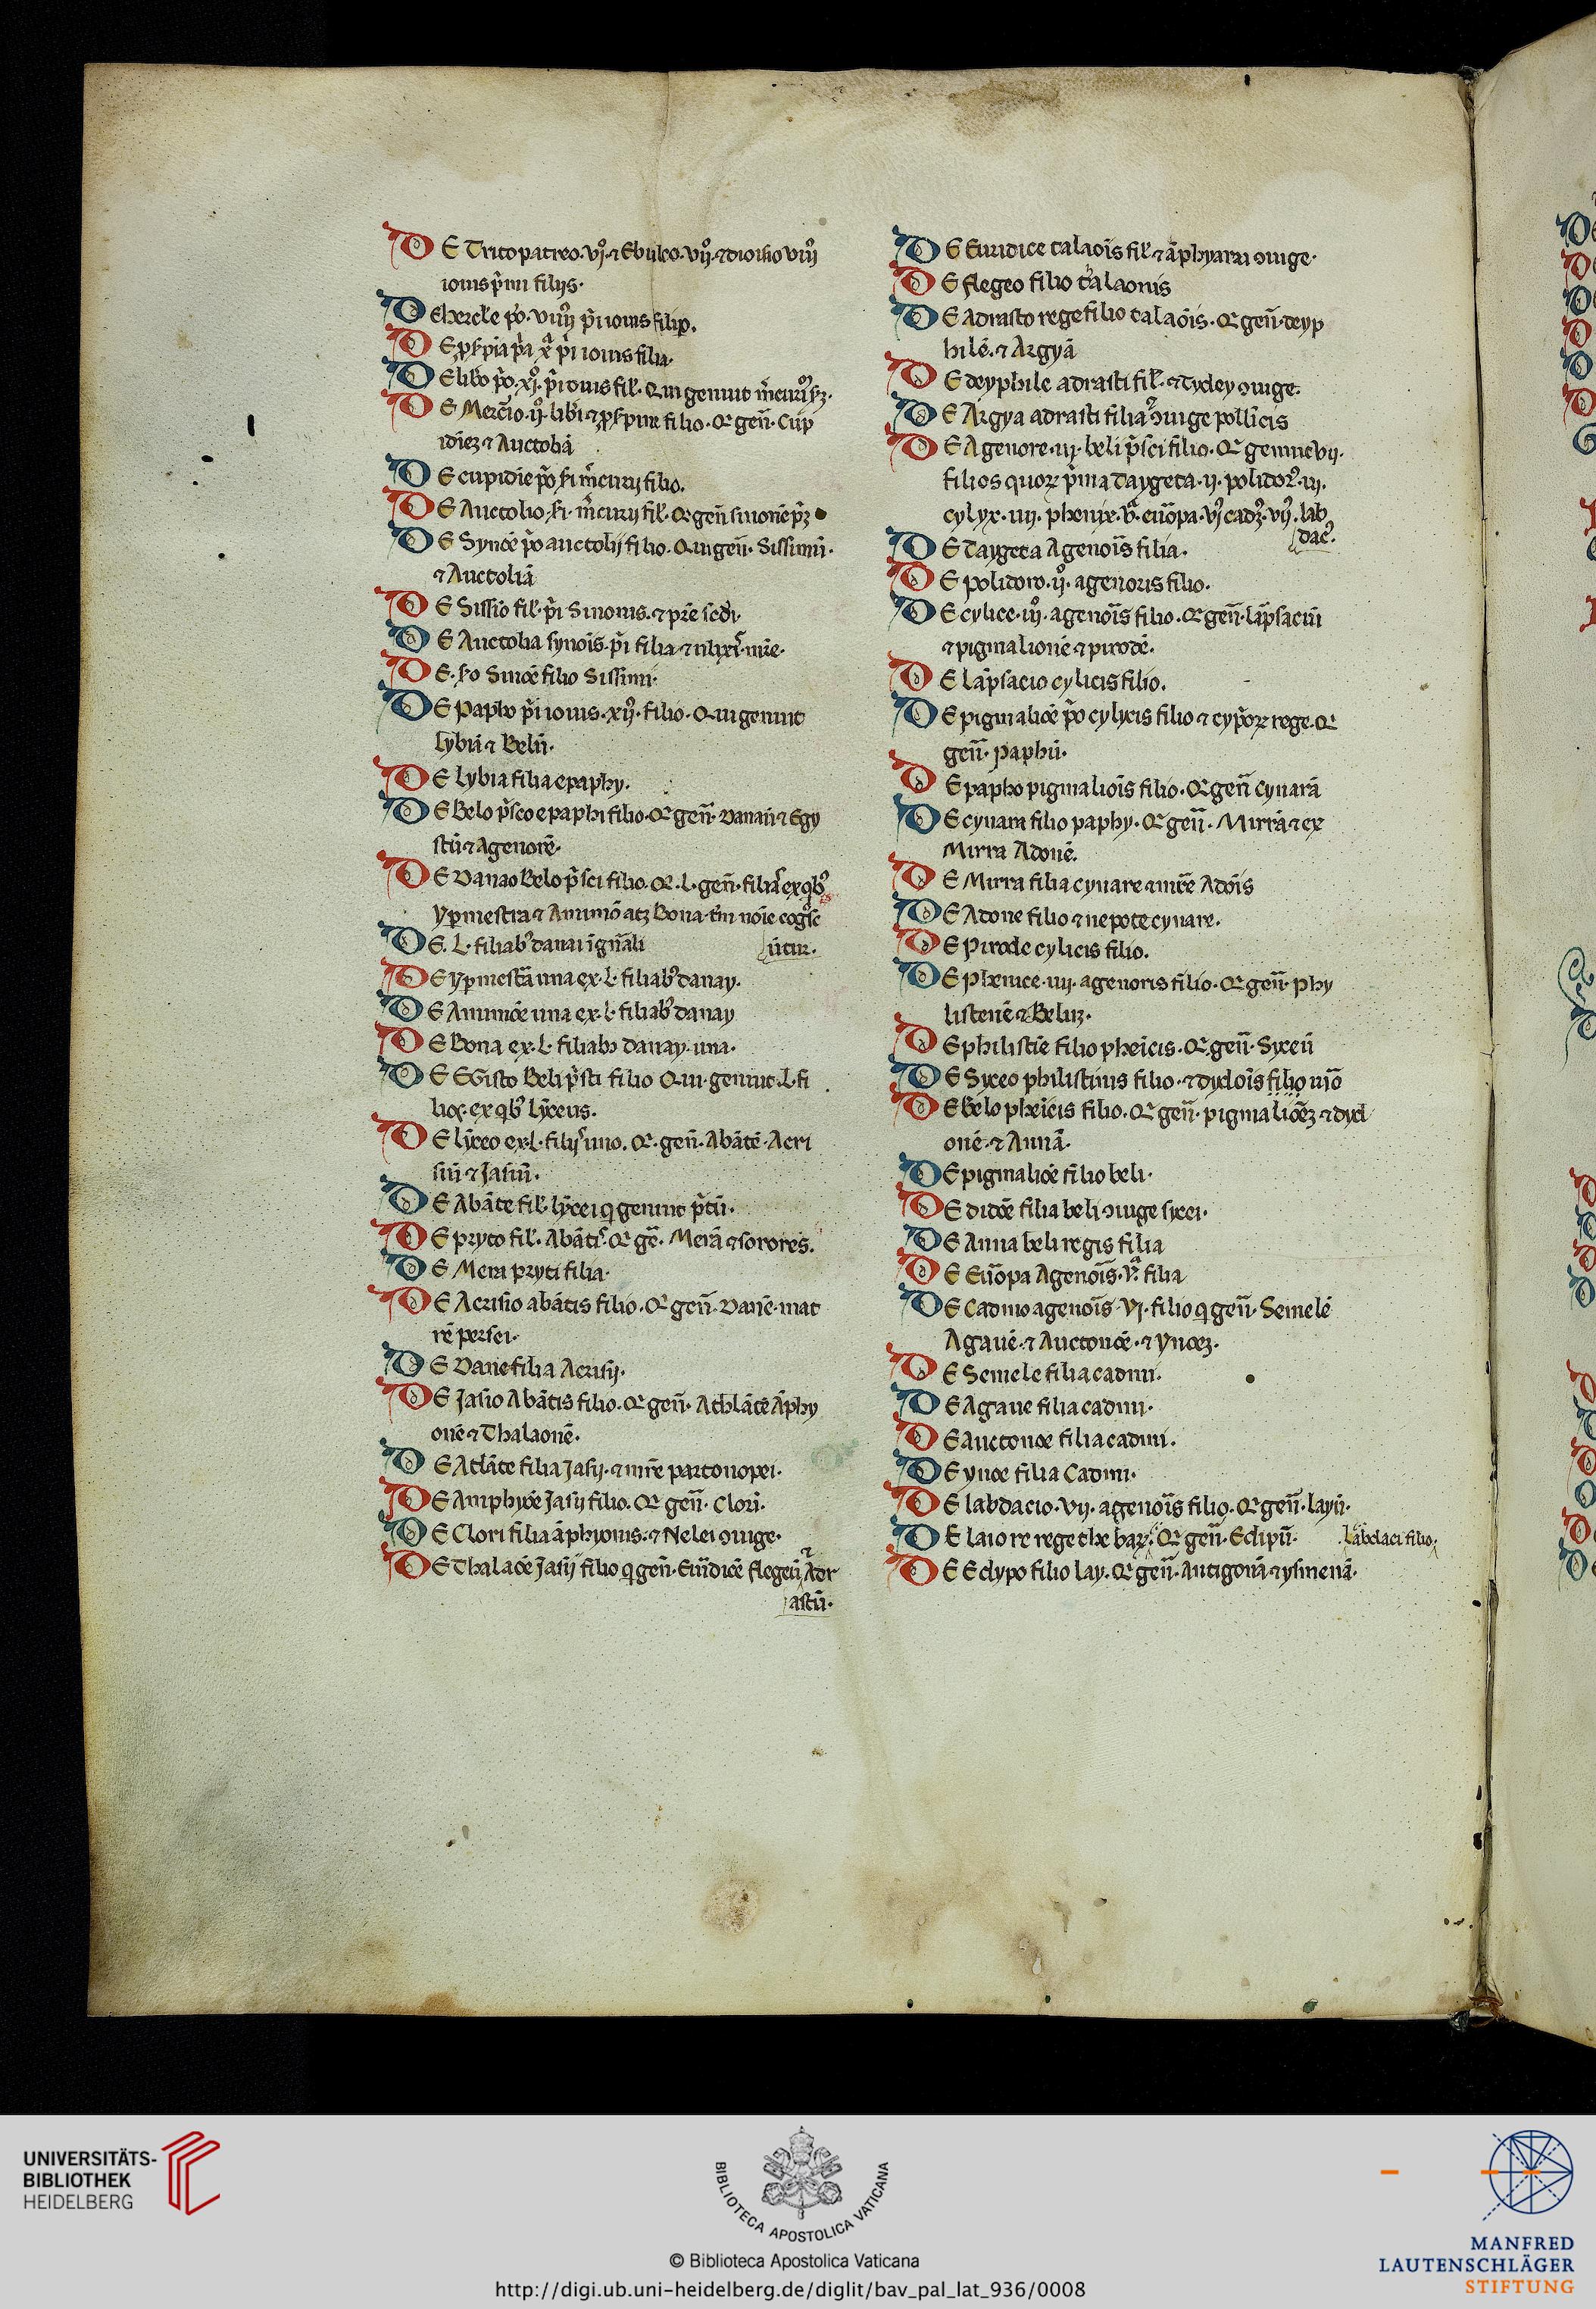 DE Tritopatreo. vjº. et Ebuleo. vijº. et dionisio viijº
iouis p̃mi filijs.
DE hercle pº. viiijº p̃i iouis filio.
DE pserpia p̃a xª p̃i iouis filia.
DE libo p̃o. xjº. p̃i iouis fil̃. Qui genuit m̃curiũ sz.
DE Merc̃io. ijº. libi et pserpine filio. Qr geñ. Cup
idiez et Auctoliã
DE cupidie p̃o. s̃i m̃curij filio.
DE Auctolio. s̃i m̃curij fil̃. Qr geñ sinonẽ p̃z
DE Synoẽ p̃o auctolij filio. Qui geñ. Sissimũ.
et Auctoliã
DE Sissio fil̃. p̃i Sinonis. et pr̃e scd̃i.
DE Auctolia synoĩs. p̃i filia et ulixĩs mr̃e.
DE. s̃o Sinoẽ filio Sissimi.
DE Papho p̃i iouis. xijº. filio. Qui genuit
lybiã et Belũ.
DE lybia filia epaphy.
DE Belo p̃sco epaphi filio. Qr geñ. Danaũ et Egy
stũ et Agenorẽ.
DE Danao Belo p̃sci filio. Qr. L. geñ. filiaꝝ ex qbꝰ
ypmestra et Amimõ atz Bona. tm̃ noĩe cogºsc
ũtur.
DE. L. filiabꝰ danai ĩ gñali
DE ypmestã una ex. L. filiabꝰ danay.
DE Amimõe una ex. L. filiabꝰ danay
DE Bona ex. L. filiabꝫ danay. una.
DE EGisto Beli p̃sci filio Qui. genuit. L. fi
lios. ex qbꝰ lỹceus.
DE lỹceo ex. L. filijs uno. Qr. geñ. Abãtẽ. Acri
siũ et Jasiũ.
DE Abãte fil̃. lỹcei q genuit p̃tũ.
DE pryto fil̃. Abãtis Qr gẽ. Merã et sorores.
DE Mera pryti filia.
DE Acrisio abãtis filio. Qr geñ. Danẽ. mat
rẽ persei.
DE Dane filia Acrisij.
DE Jasio Abãtis filio. Qr geñ. Athlãtẽ Ãphy
onẽ et Thalaonẽ.
DE Atlãte filia Jasij. et mr̃e partonopei.
DE Amphyoẽ Jasij filio. Qr geñ. Clorĩ.
DE Clori filia ãphyonis. et Nelei ꝯiuge.
DE Thalaoẽ Jasij filio q geñ. Eurĩdicẽ flegeũ et Adr
astũ.
DE Euridice talaoĩs fil̃. et ãphyarai ꝯiuge.
DE flegeo filio talaonis
DE Adrasto rege filio talaoĩs. Qr geñ. deyp
hilẽ. et Argyã
DE deyphile adrasti fil̃. et Tydey ꝯiuge.
DE Argya adrasti filia et ꝯiuge pollĩicis
DE Agenore. iij. beli p̃sci filio. Qr genuit vij.
filios quoꝝ p̃ma Taygeta. ij. polidorꝰ. iij.
cylyx. iiij. phenix. vª. eurõpa. vjꝰ cadꝰ. vijꝰ. lab
dacꝰ.
DE Taygeta Agenoĩs filia.
DE polidoro. ijº. agenoris filio.
DE cylice. iijº. agenoĩs filio. Qr geñ. lãpsaciũ
et pigmalionẽ et pirodẽ.
DE lãpsacio cylicis filio.
DE pigmalioẽ p̃o cylycis filio et cyp̃oꝝ rege. Qr
geñ. paphũ.
DE papho pigmalioĩs filio. Qr geñ cynarã
DE cynara filio paphy. Qr geñ. Mirrã et ex
Mirra Adonẽ.
DE Mirra filia cynare et mr̃e Adoĩs
DE Adone filio et nepote cynare.
DE Pirode cylicis filio.
DE Phenice. iiij. agenoris filio. Qr geñ. phy
listenẽ et Beluz.
DE philistẽe filio phẽicis. Qr geñ. Syceũ
DE Syceo philistinis filio. et dydoĩs filio uiõ
DE belo phẽicis filio. Qr geñ. pigmalioẽz et dyd
onẽ. et Annã.
DE pigmalioẽ filio beli.
DE didoẽ filia beli ꝯiuge sycei.
DE Anna beli regis filia
DE Eurõpa Agenoĩs. vª. filia
DE Cadmo agenoĩs. vj. filio q geñ. Semelẽ
Agauẽ. et Auctonoẽ. et ynoez.
DE Semele filia cadmi.
DE Agaue filia cadmi.
DE auctonoe filia cadmi.
DE ynoe filia Cadmi.
DE labdacio. vij. agenoĩs filio. Qr geñ. layũ.
DE laio re rege thebaꝝ. Qr geñ. Edipũ. labdaci filio.
DE Edypo filio lay. Qr geñ. Antigonã et ysmenã.
UNIVERSITÄTS-
BIBLIOTHEK
HEIDELBERG
BIBLIOTECA APOSTOLICA VATICANA
© Biblioteca Apostolica Vaticana
http://digi.ub.uni-heidelberg.de/diglit/bav_pal_lat_936/0008
MANFRED
LAUTENSCHLÄGER
STIFTUNG